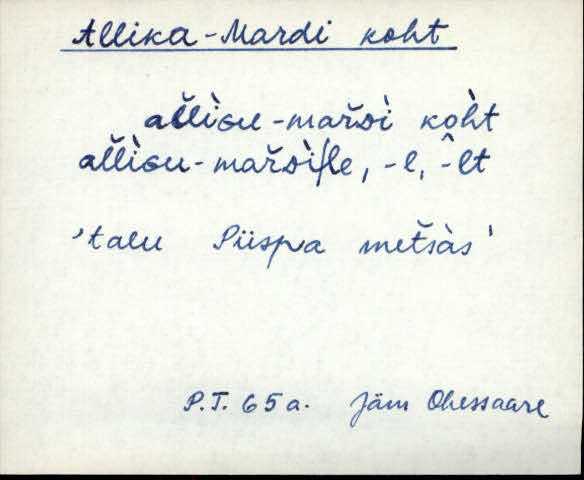 Allika-Mardi koht
al̆l̆ìGu-mar̆Dì kò̭ht
al̆l̆ìGu-mar̆Dì|le, -l, -̭lt
'talu Piispa met̆sàs'
P.T. 65a. Jäm Ohessaare